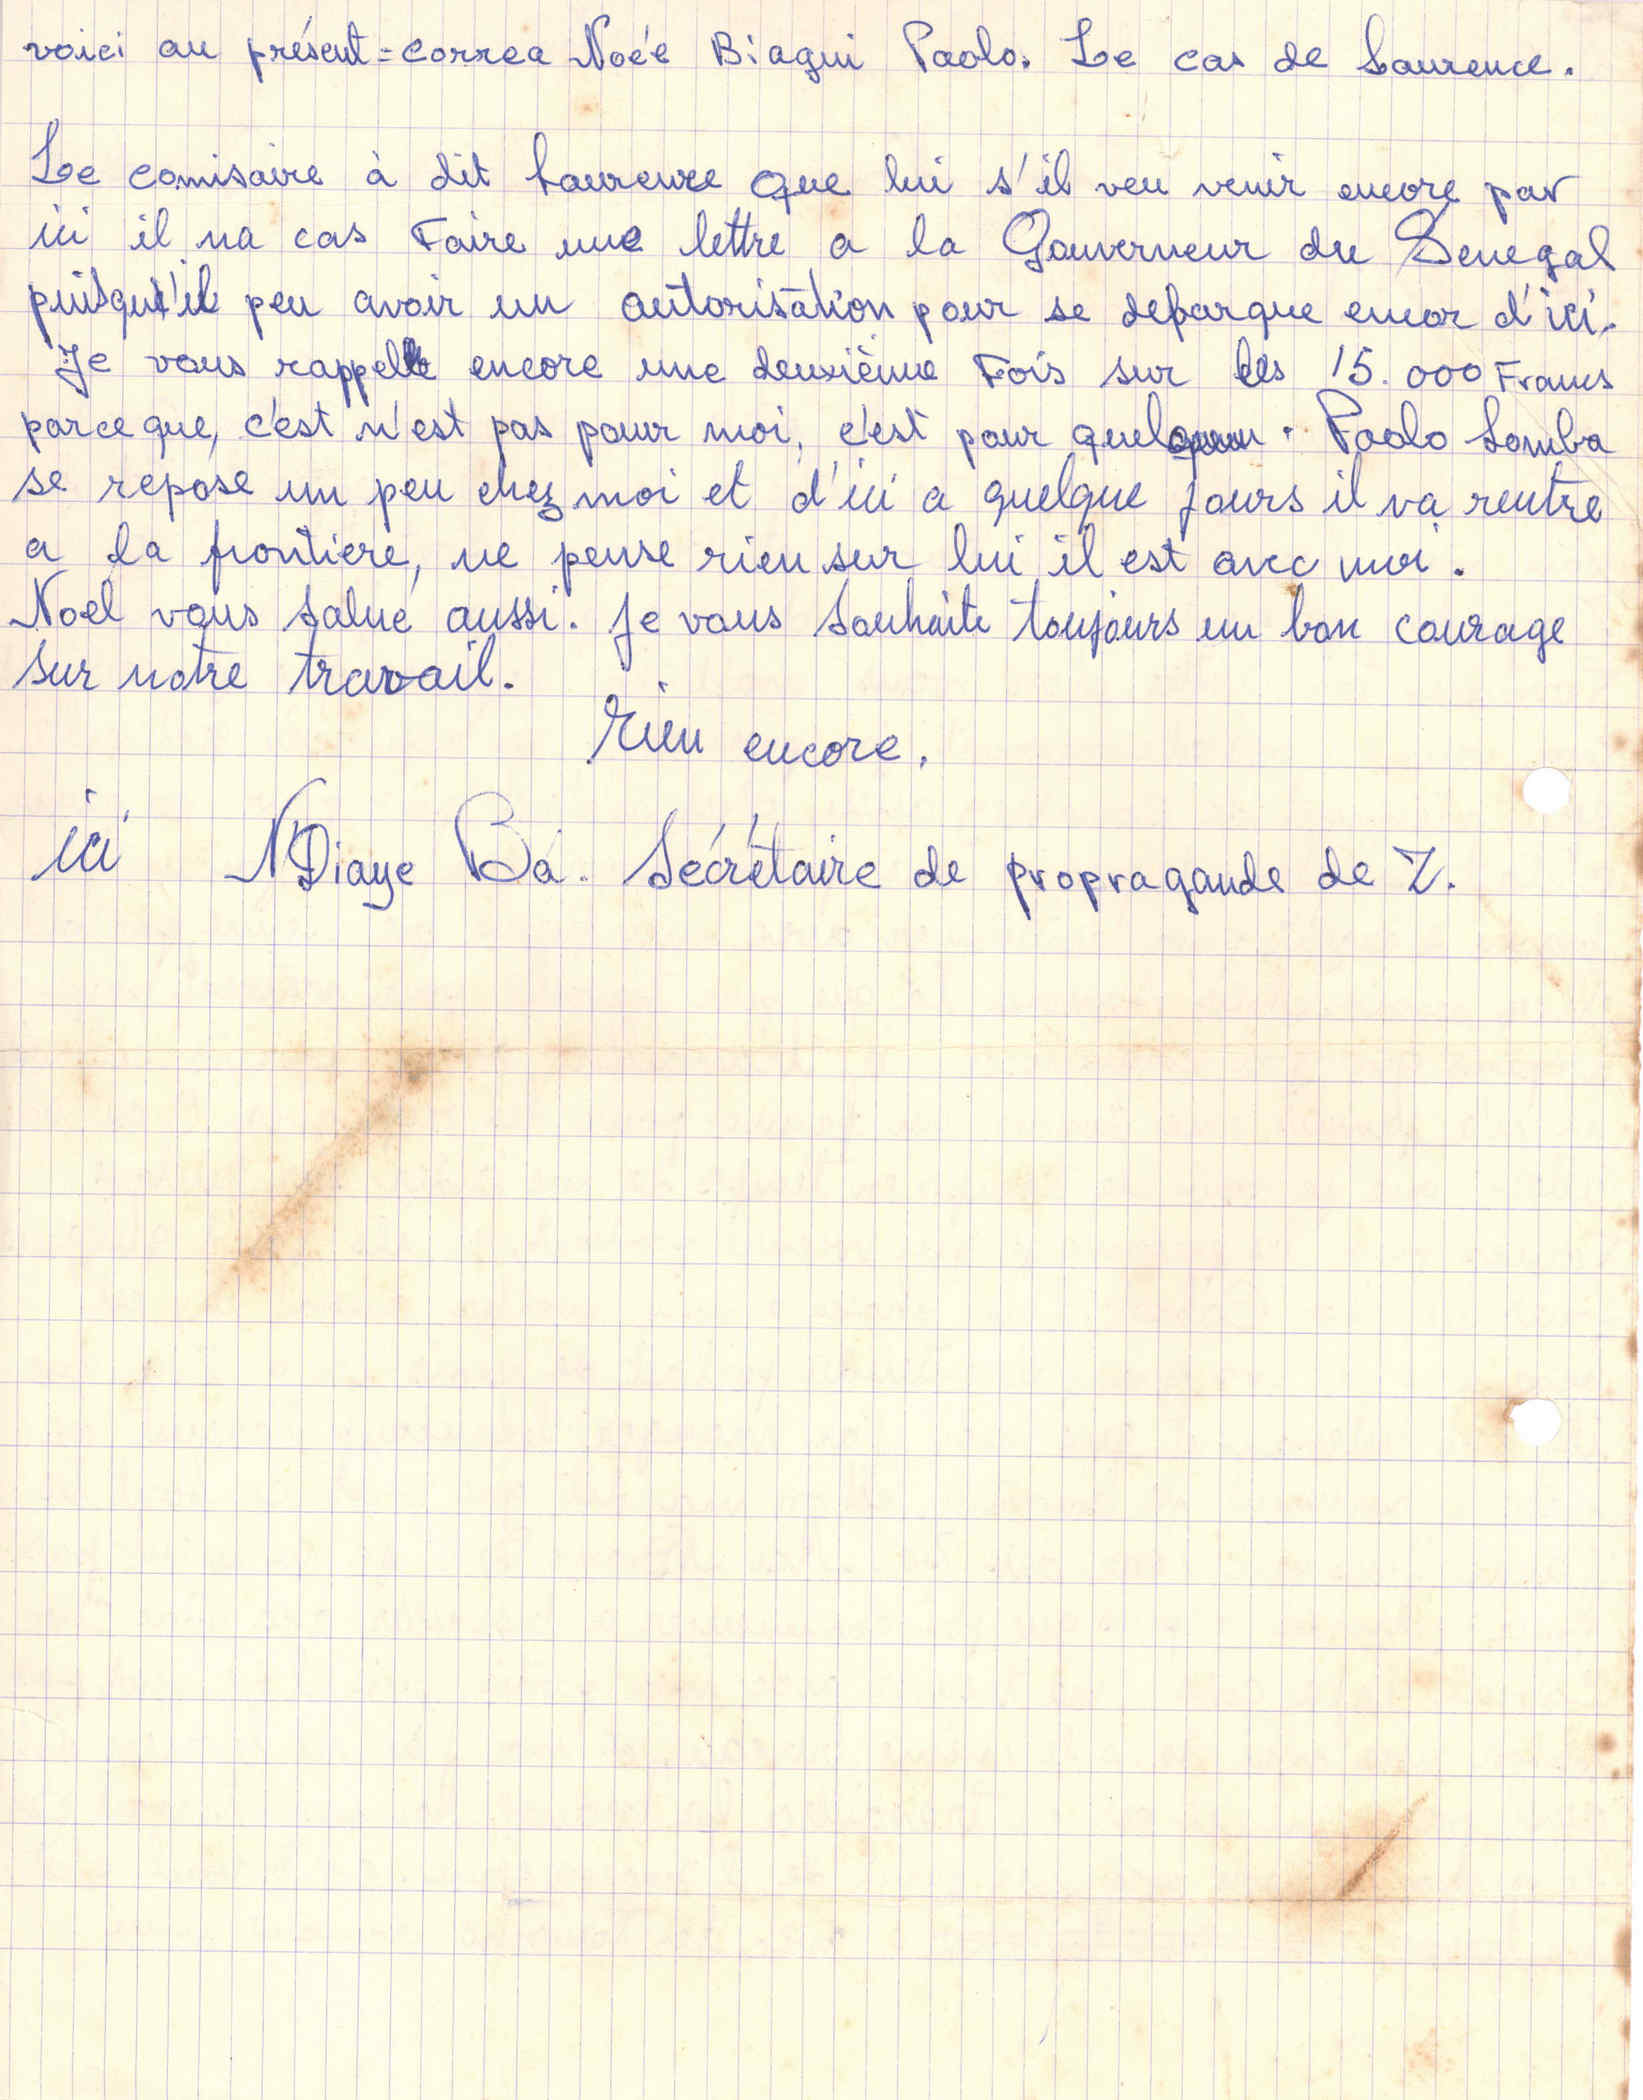 voici au présent = correa Noée Biagui Paolo. Le cas de Laurence.
Le comisaire à dit Laurence que lui s'il veu venir encore par
ici il na cas Faire une lettre a la Gouverneur du Senegal
puisqu'il peu avoir un autorisation pour se debarque encor d'ici.
Je vous rappelle encore une deuxième Fois sur les 15.000 Francs
parce que, c'est n'est pas pour moi, c'est pour quelqun. Paolo Lomba
se repose un peu chez moi et d'ici a quelque jours il va rentre
a la frontiere, ne pense rien sur lui il est avec moi.
Noel vous salue aussi. Je vous souhaite toujours un bon courage
sur notre travail.
Rien encore.
ici NDiaye Ba. Sécrétaire de propragande de Z.